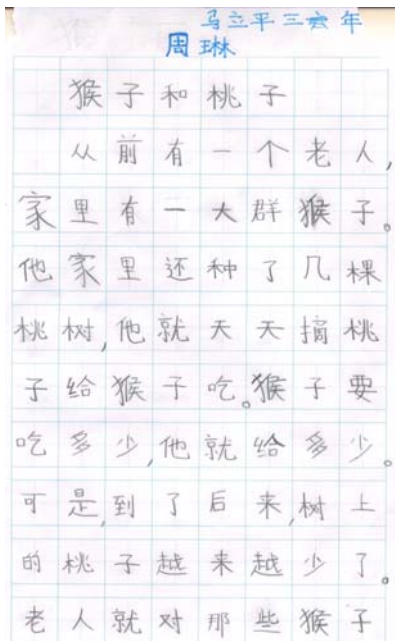 马立平三年
周琳
猴子和桃子
从前有一个老人,
家里有一大群猴子。
他家里还种了几棵
桃树,他就天天摘桃
子给猴子吃。猴子要
吃多少,他就给多少。
可是,到了后来,树上
的桃子越来越少了。
老人就对那些猴子